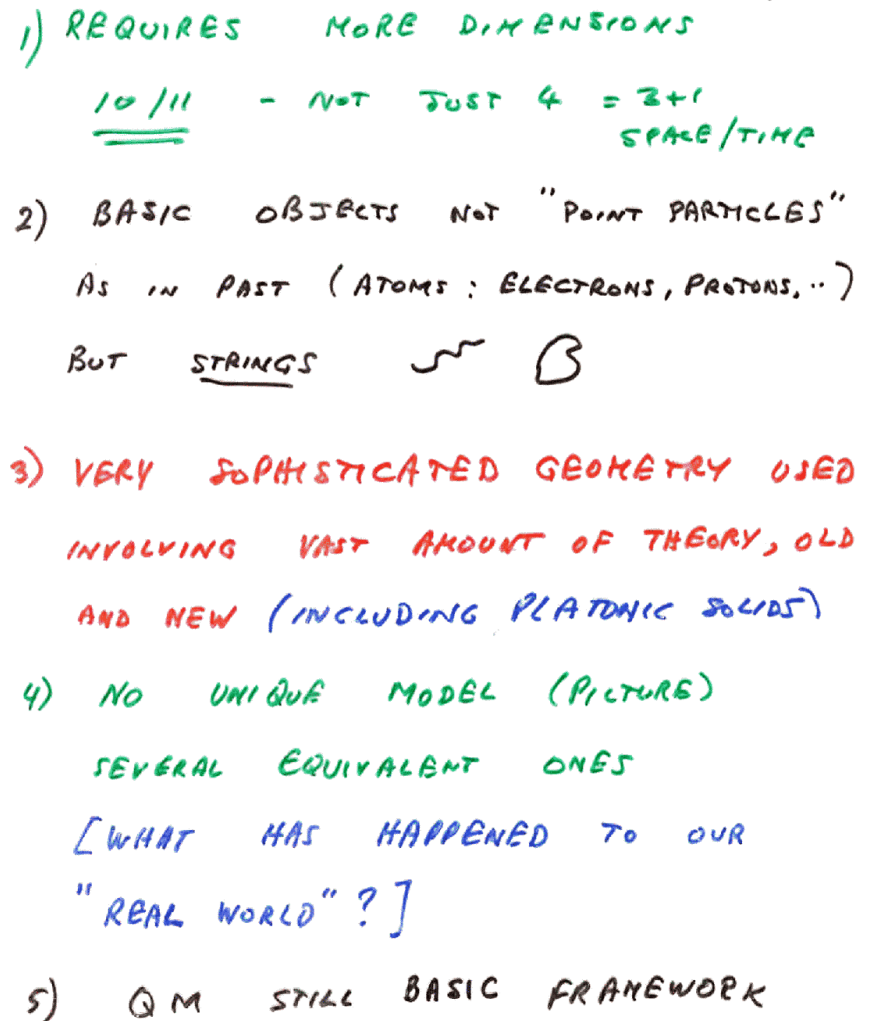 1) REQUIRES MORE DIMENSIONS
10/11 - NOT JUST 4 = 3+1
SPACE/TIME
2) BASIC OBJECTS NOT "POINT PARTICLES"
AS IN PAST (ATOMS: ELECTRONS, PROTONS, ..)
BUT STRINGS
3) VERY SOPHISTICATED GEOMETRY USED
INVOLVING VAST AMOUNT OF THEORY, OLD
AND NEW (INCLUDING PLATONIC SOLIDS)
4) NO UNIQUE MODEL (PICTURE)
SEVERAL EQUIVALENT ONES
[WHAT HAS HAPPENED TO OUR
"REAL WORLD"?]
5) QM STILL BASIC FRAMEWORK